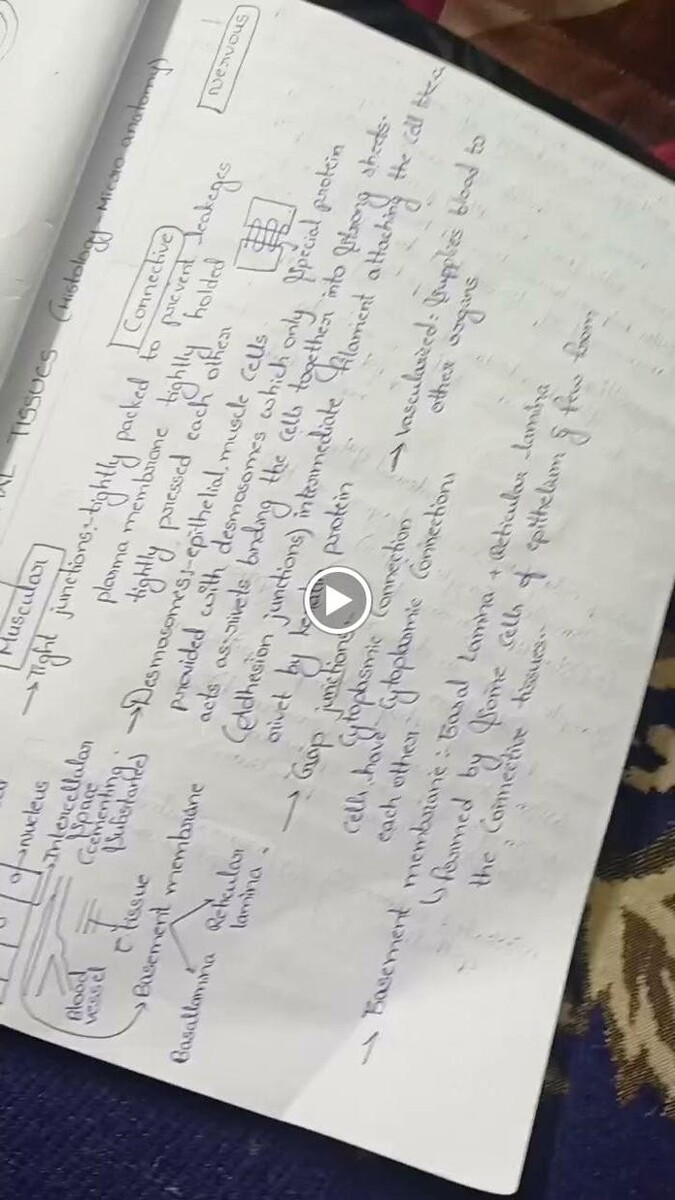 AL TISSUES (Histology - Micro anatomy)
Muscular
Connective
Nervous
→ Tight junctions:- tightly packed to prevent leakages
plasma membrane tightly holded
tightly pressed each other
→ Desmosomes:- epithelial, muscle cells
provided with desmosomes which only special protein
acts as rivets binding the cells together into strong sheets.
(Adhesion junctions) intermediate filament attaching the cell
rivet by protein
→ Gap junctions:-
Cytoplasmic Connection
→ Vascularized: Supplies blood to
other organs
cells have Cytoplasmic Connections
each other.
→ Basement membrane:- Basal Lamina + Reticular lamina
↳ formed by some cells of epithelium & few from
the Connective tissues.
→ Nucleus
→ Intercellular
Space
(Cementing
Substances)
Blood
vessel
tissue
→ Basement membrane
Basallamina
Reticular
lamina.